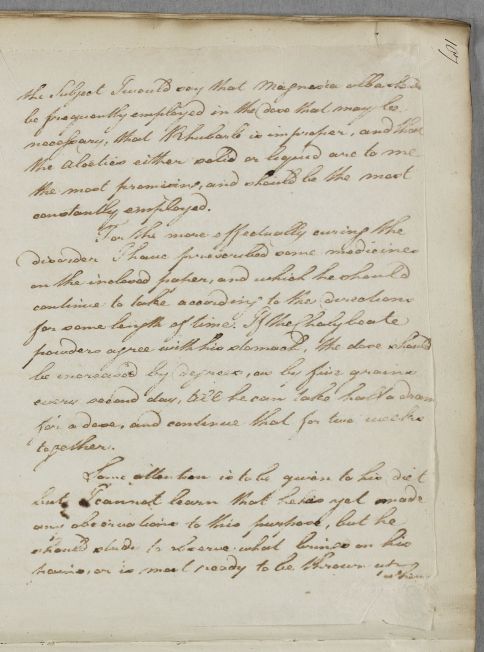 107
the Subject I would say that Magnesia alba should
be frequently employed in the dose that may be
necessary, that Rhubarb is improper, and that
the Aloetics either solid or liquid are to me
the most promising, and should be the most
constantly employed.
For the more effectually curing the
disorder I have prescribed some medicines
on the inclosed paper, and which he should
continue to take according to the directions
for some length of time. If the Chalybeate
powders agree with his stomach, the dose should
be increased by degrees, as by five grains
every second day, till he can take half a dram
for a dose, and continue that for two weeks
together.
Some attention is to be given to his diet
but I cannot learn that he has yet made
any observations to this purpose, but he
should study to observe what brings on his
pains, or is most ready to be thrown up
when